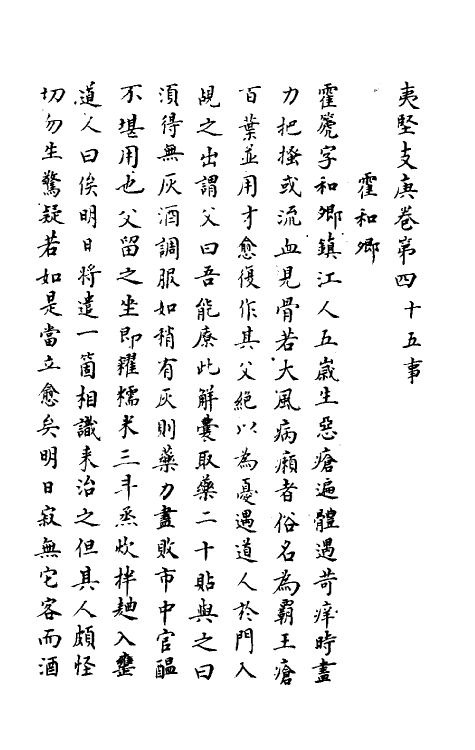 夷堅支庚卷第四十五事
霍和卿
霍篪字和卿鎮江人五歲生惡瘡遍體遇苛痒時盡
力把搔或流血見骨若大風病癩者俗名為霸王瘡
百藥並用才愈復作其父絕以為憂遇道人於門入
覘之出謂父曰吾能療此解囊取藥二十貼與之曰
須得無灰酒調服如稍有灰則藥力盡敗市中官醖
不堪用也父留之坐即糴糯米三斗烝炊拌麯入甕
道人曰俟明日將遣一箇相識来治之但其人頗怪
切勿生驚疑若如是當立愈矣明日寂無它客而酒